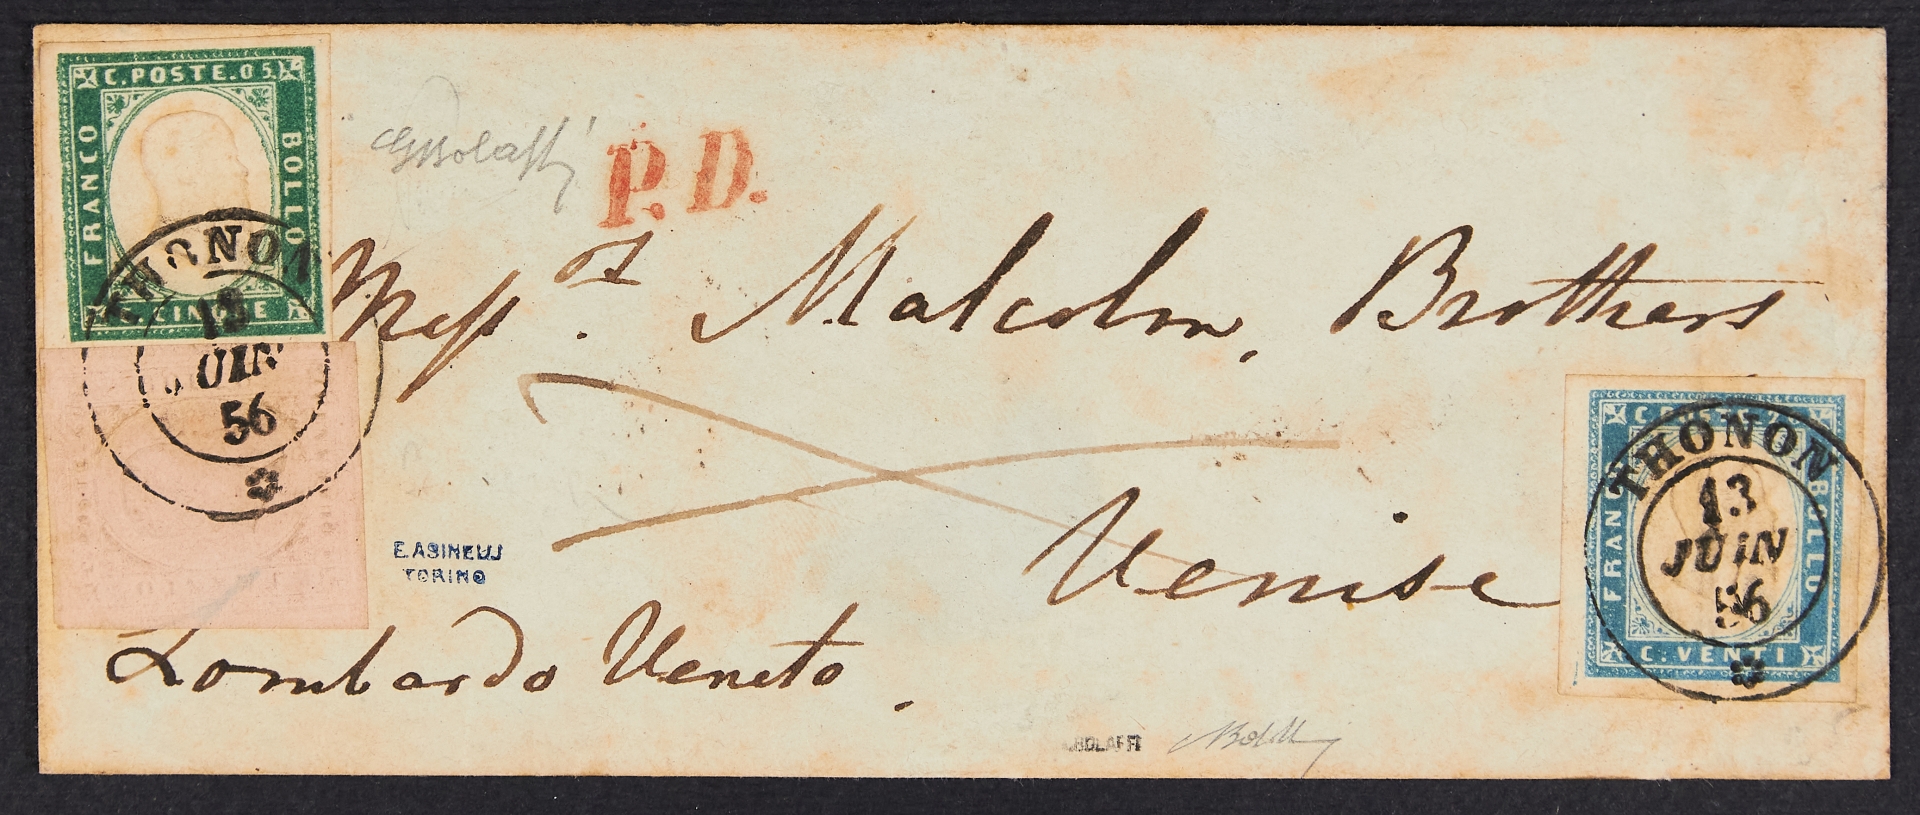 C. POSTE. 05
FRANCO
BOLLO
CINQUE
THONON
13
JUIN
56
GBolaffi
P. D.
Mess.rs Malcolm, Brothers
Venise
Lombardo Veneto.
E. ASINELLI
TORINO
FRANCO
BOLLO
C: VENTI
THONON
13
JUIN
56
A. BOLAFFI